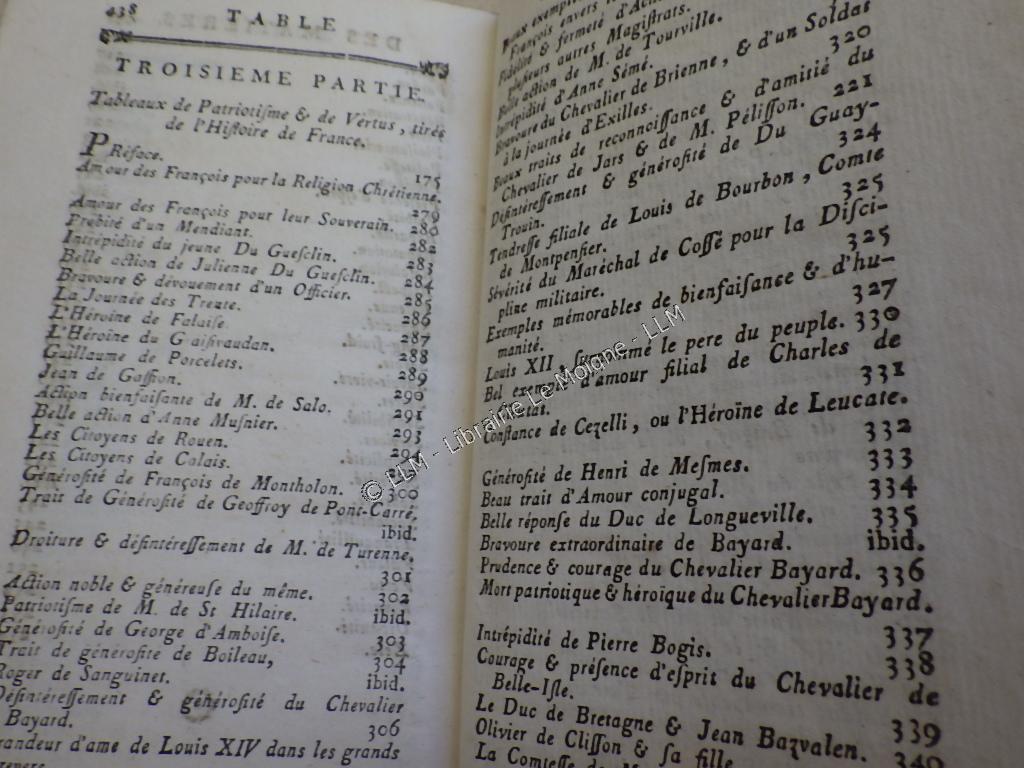 438 TABLE
TROISIEME PARTIE.
Tableaux de Patriotiſme & de Vertus, tirés
de l'Hiſtoire de France.
PRéface. 175
Amour des François pour la Religion Chrétienne.
279
Amour des François pour leur Souverain. 280
Probité d'un Mendiant. 282
Intrépidité du jeune Du Gueſclin. 283
Belle action de Julienne Du Gueſclin. 284
Bravoure & dévouement d'un Officier. 285
La Journée des Trente. 286
L'Héroïne de Falaiſe. 287
L'Héroïne du Graiſivaudan. 288
Guillaume de Porcelets. 289
Jean de Gaſſion. 290
Action bienfaiſante de M. de Salo. 291
Belle action d'Anne Muſnier. 293
Les Citoyens de Rouen. 294
Les Citoyens de Calais.
Généroſité de François de Montholon. 300
Trait de Généroſité de Geoffroy de Pont-Carré,
ibid.
Droiture & déſintéreſſement de M. de Turenne.
301
Action noble & généreuſe du même. 302
Patriotiſme de M. de St Hilaire. ibid.
Généroſité de George d'Amboiſe. 303
Trait de généroſité de Boileau, 304
Roger de Sanguinet. ibid.
Déſintéreſſement & généroſité du Chevalier
Bayard. 306
Grandeur d'ame de Louis XIV dans les grands
revers.
François envers
Fidélité & fermeté d'Ach
pluſieurs autres Magiſtrats.
Belle action de M. de Tourville.
Intrépidité d'Anne Sémé.
Bravoure du Chevalier de Brienne, & d'un Soldat
à la journée d'Exilles. 320
Beaux traits de reconnoiſſance & d'amitié du
Chevalier de Jars & de M. Péliſſon. 221
Déſintéreſſement & généroſité de Du Guay-
Trouin. 324
Tendreſſe filiale de Louis de Bourbon, Comte
de Montpenſier. 325
Sévérité du Maréchal de Coſſé pour la Diſci-
pline militaire. 325
Exemples mémorables de bienfaiſance & d'hu-
manité. 327
Louis XII, ſurnommé le pere du peuple. 330
Bel exemple d'amour filial de Charles de
331
Conſtance de Cezelli, ou l'Héroïne de Leucate.
332
Généroſité de Henri de Meſmes. 333
Beau trait d'Amour conjugal. 334
Belle réponſe du Duc de Longueville. 335
Bravoure extraordinaire de Bayard. ibid.
Prudence & courage du Chevalier Bayard. 336
Mort patriotique & héroïque du Chevalier Bayard.
337
Intrépidité de Pierre Bogis. 338
Courage & préſence d'eſprit du Chevalier de
Belle-Iſle. 339
Le Duc de Bretagne & Jean Bazvalen. 340
Olivier de Cliſſon & ſa fille.
La Comteſſe de
© LLM - Librairie Le Moigne - LLM